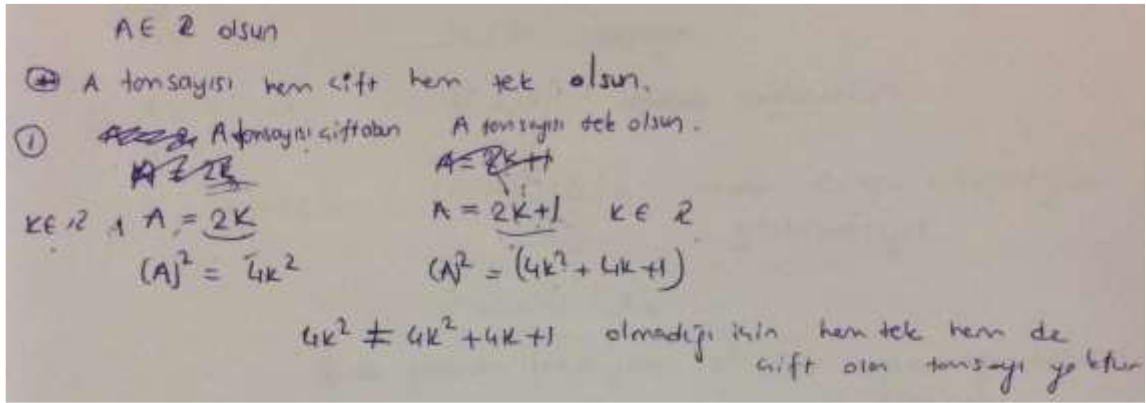 A ∈ Z olsun
* A tamsayısı hem çift hem tek olsun.
① A tamsayısı çift olsun A tamsayısı tek olsun.
A = 2K A = 2K+1
K ∈ Z , A = 2K A = 2K+1 K ∈ Z
(A)² = 4K² (A)² = (4K² + 4K + 1)
4K² ≠ 4K² + 4K + 1 olmadığı için hem tek hem de
çift olan tamsayı yoktur